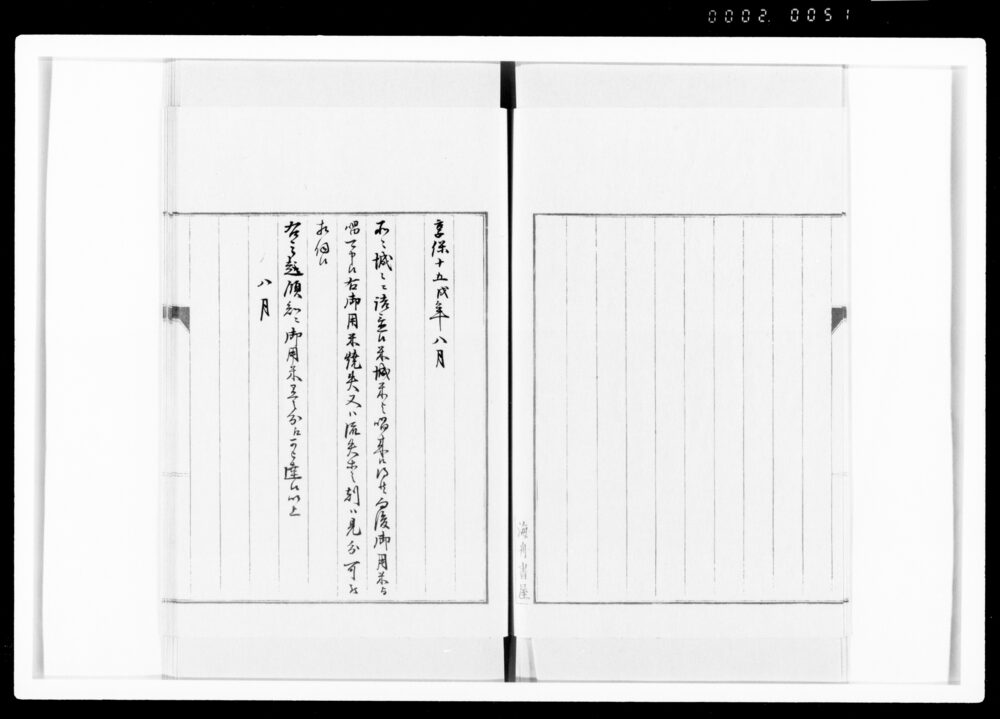 0002. 0051
海舟書屋
享保十五戌年八月
所々城々ニ詰置候米城米と唱来候得共向後御用米与
唱可申候右御用米焼失又ハ流失等之節ハ見分可被
相伺候
右之趣領知ニ御用米有之分江可被達候以上
八月